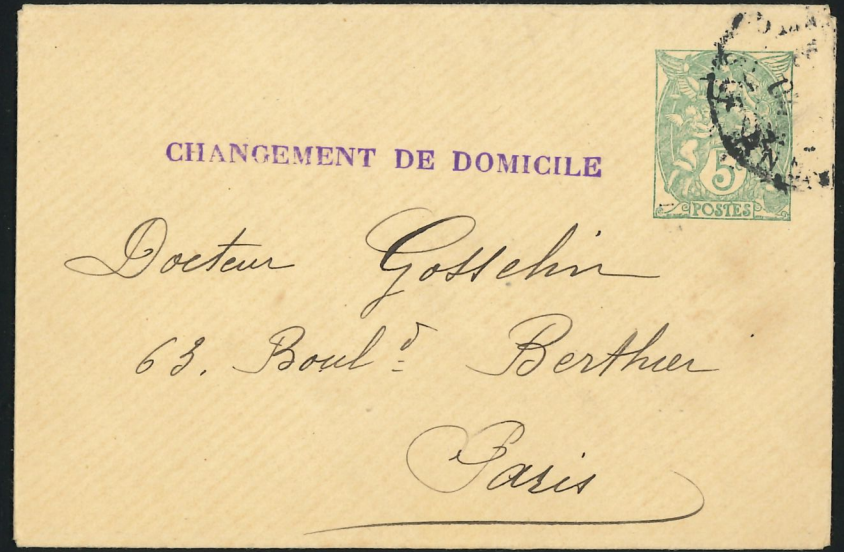 CHANGEMENT DE DOMICILE
5
POSTES
Docteur Gosselin
63. Boul.d Berthier
Paris